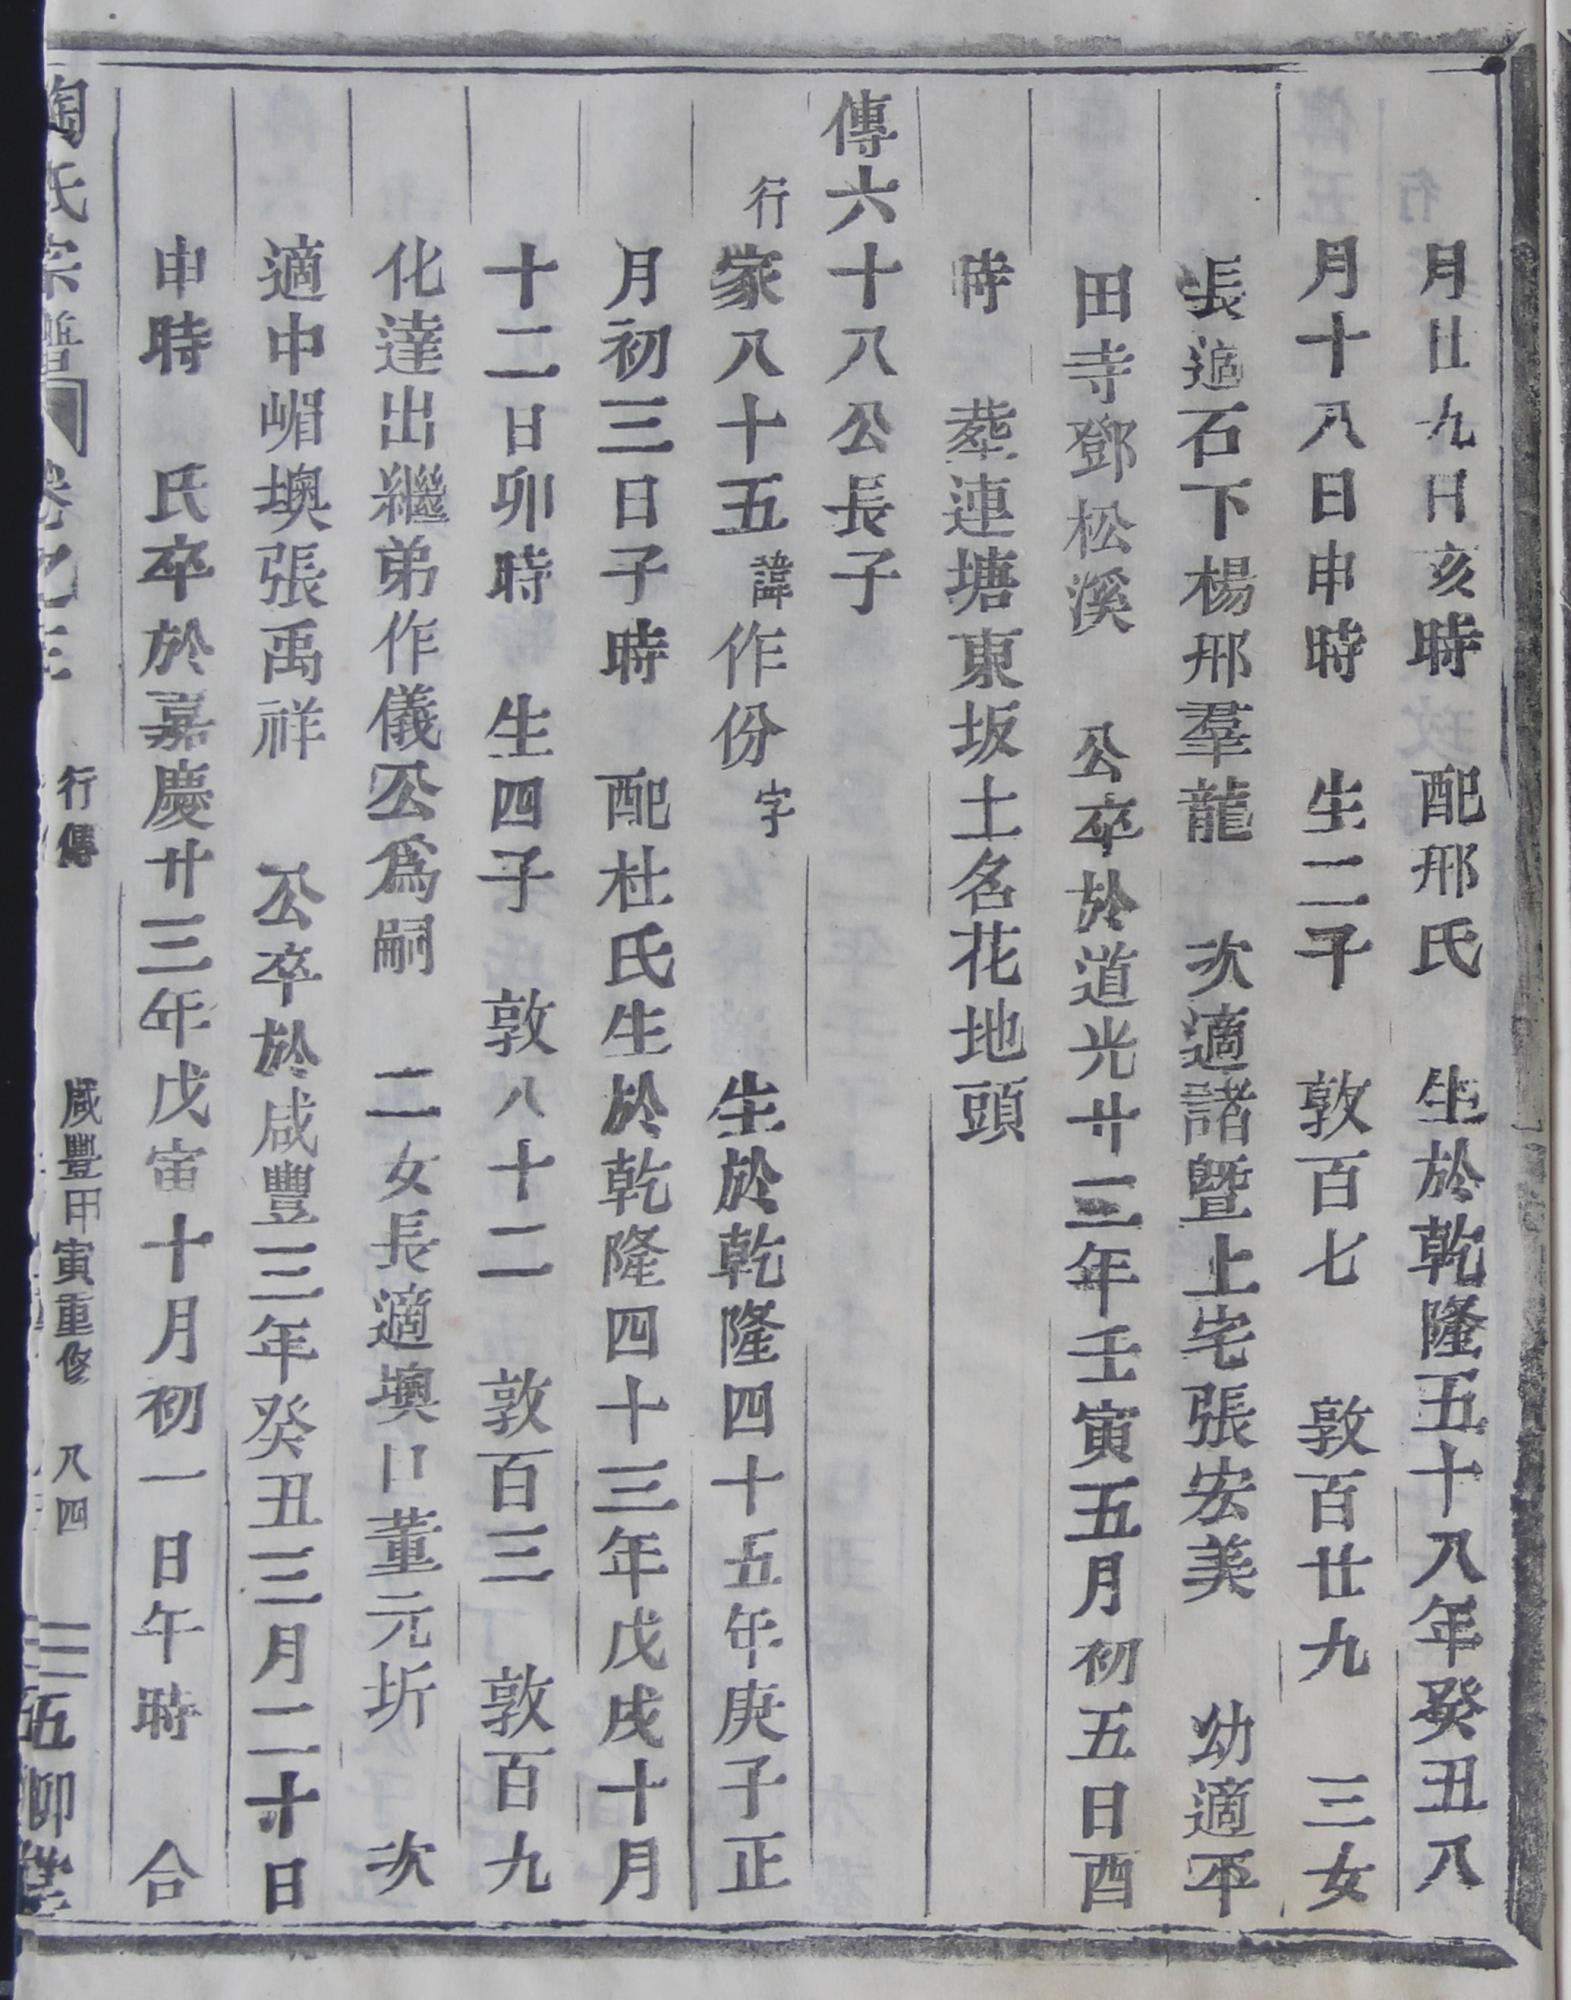 月廿九日亥時 配邢氏 生於乾隆五十八年癸丑八
月十八日申時 生二子 敦百七 敦百廿九 三女
長適石下楊邢羣龍 次適諸暨上宅張宏美 幼適平
田寺鄧松溪 公卒於道光廿三年壬寅五月初五日酉
時 塟連塘東坂土名花地頭
傳六十八公長子
行家八十五諱作份字 生於乾隆四十五年庚子正
月初三日子時 配杜氏生於乾隆四十三年戊戌十月
十二日卯時 生四子 敦八十二 敦百三 敦百九
化達出繼弟作儀公爲嗣 二女長適墺口董元圻 次
適中嵋墺張禹祥 公卒於咸豐三年癸丑三月二十日
申時 氏卒於嘉慶廿三年戊寅十月初一日午時 合
陶氏宗譜 卷 行傳 咸豐甲寅重修 八四 五柳堂